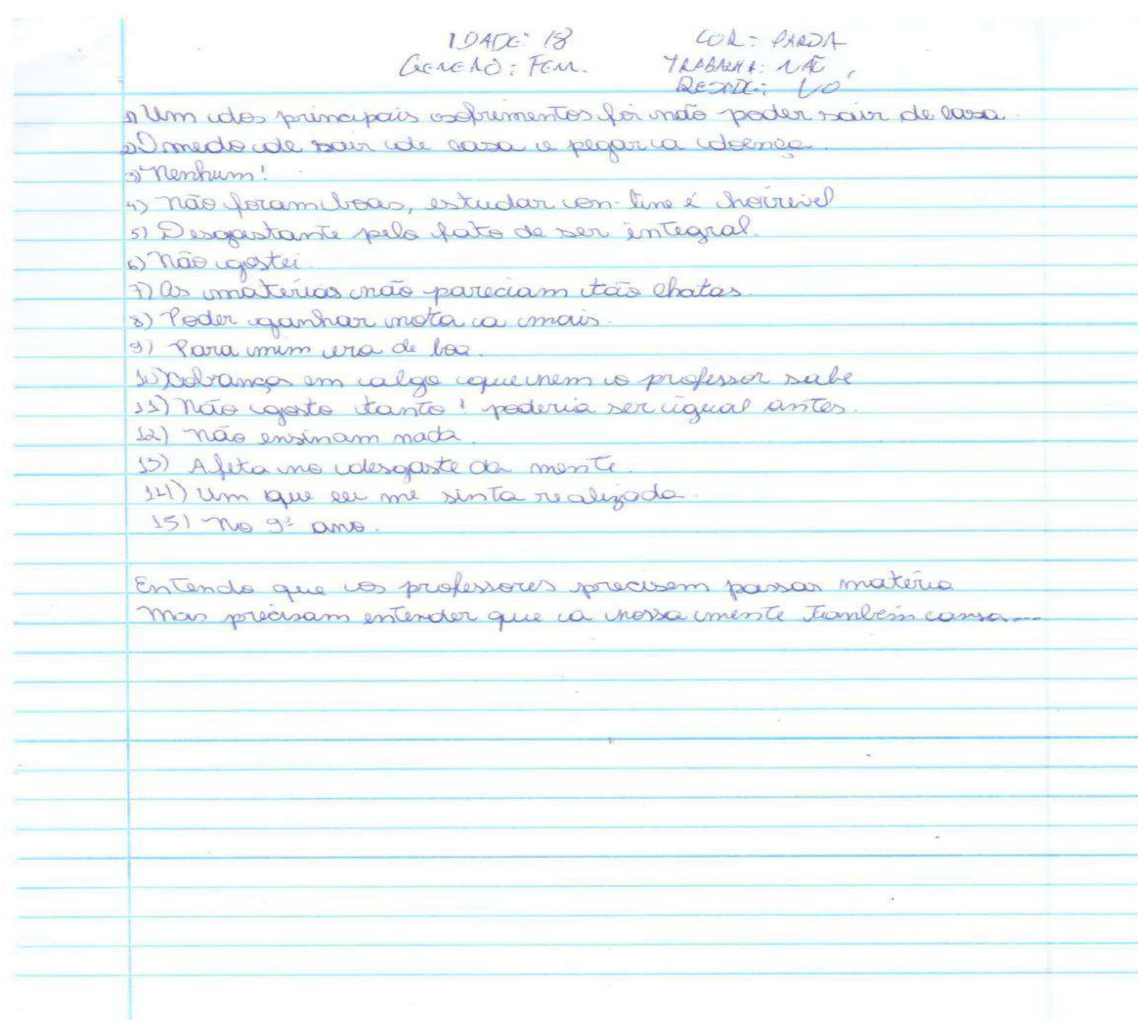 IDADE: 18 COR: PARDA
GENERO: FEM. TRABALHA: NÃO
RESIDE: VÓ
1) Um dos principais sofrimentos foi não poder sair de casa.
2) O medo de sair de casa e pegar a doença.
3) Nenhum!
4) Não foram boas, estudar on-line é horrivel
5) Desgastante pelo fato de ser integral.
6) Não gostei.
7) As materias não pareciam tão chatas.
8) Poder ganhar nota a mais.
9) Para mim era de boa.
10) Cobranças em algo que nem o professor sabe
11) Não gosto tanto! poderia ser igual antes.
12) Não ensinam nada.
13) Afeta no desgaste da mente.
14) Um que eu me sinta realizada.
15) No 9º ano.
Entendo que os professores precisem passar materia
Mas precisam entender que a nossa mente também cansa...